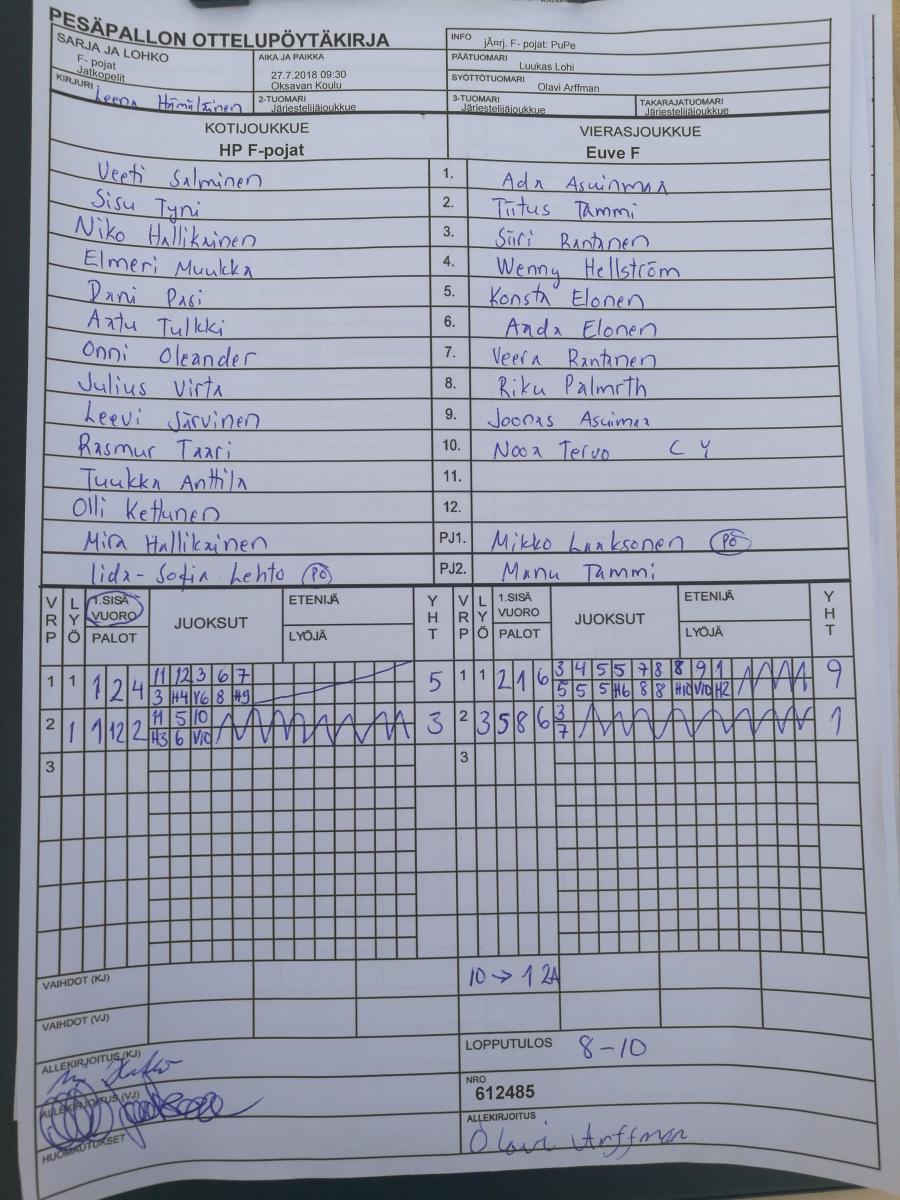 PESÄPALLON OTTELUPÖYTÄKIRJA
SARJA JA LOHKO
F- pojat
Jatkopelit
AIKA JA PAIKKA
27.7.2018 09:30
Oksavan Koulu
INFO
jÄ¤rj. F- pojat: PuPe
PÄÄTUOMARI
Luukas Lohi
SYÖTTÖTUOMARI
Olavi Arffman
KIRJURI
Leena Hämäläinen
2-TUOMARI
Järjestelijäjoukkue
3-TUOMARI
Järjestelijäjoukkue
TAKARAJATUOMARI
Järjestelijäjoukkue
KOTIJOUKKUE
HP F-pojat
VIERASJOUKKUE
Euve F
Veeti Salminen 1. Ada Asuinmaa
Sisu Tyni 2. Tiitus Tammi
Niko Hallikainen 3. Siiri Rantanen
Elmeri Muukka 4. Wenny Hellström
Dani Pasi 5. Konsta Elonen
Aatu Tulkki 6. Aada Elonen
Onni Oleander 7. Veera Rantanen
Julius Virta 8. Riku Palmrth
Leevi Järvinen 9. Joonas Asuimaa
Rasmur Taari 10. Nooa Tervo C Y
Tuukka Anttila 11.
Olli Kettunen 12.
Mira Hallikainen PJ1. Mikko Laaksonen PÖ
Iida-Sofia Lehto PÖ PJ2. Manu Tammi
VRP LYÖ 1.SISÄ VUORO PALOT JUOKSUT ETENIJÄ LYÖJÄ YHT
VRP LYÖ 1.SISÄ VUORO PALOT JUOKSUT ETENIJÄ LYÖJÄ YHT
1 1 1 2 4 11 12 3 6 7 5
3 H4 V6 8 H9
1 1 2 1 6 3 4 5 5 7 8 8 9 1 9
5 5 5 H6 8 8 H10 V10 H2
2 1 1 12 2 11 5 10 3
H3 6 V10
2 3 5 8 6 3 1
7
3 3
VAIHDOT (KJ) 10 → 1 2A
VAIHDOT (VJ)
ALLEKIRJOITUS (KJ)
LOPPUTULOS 8-10
ALLEKIRJOITUS (VJ)
NRO
612485
HUOMAUTUKSET
ALLEKIRJOITUS
Olavi Arffman